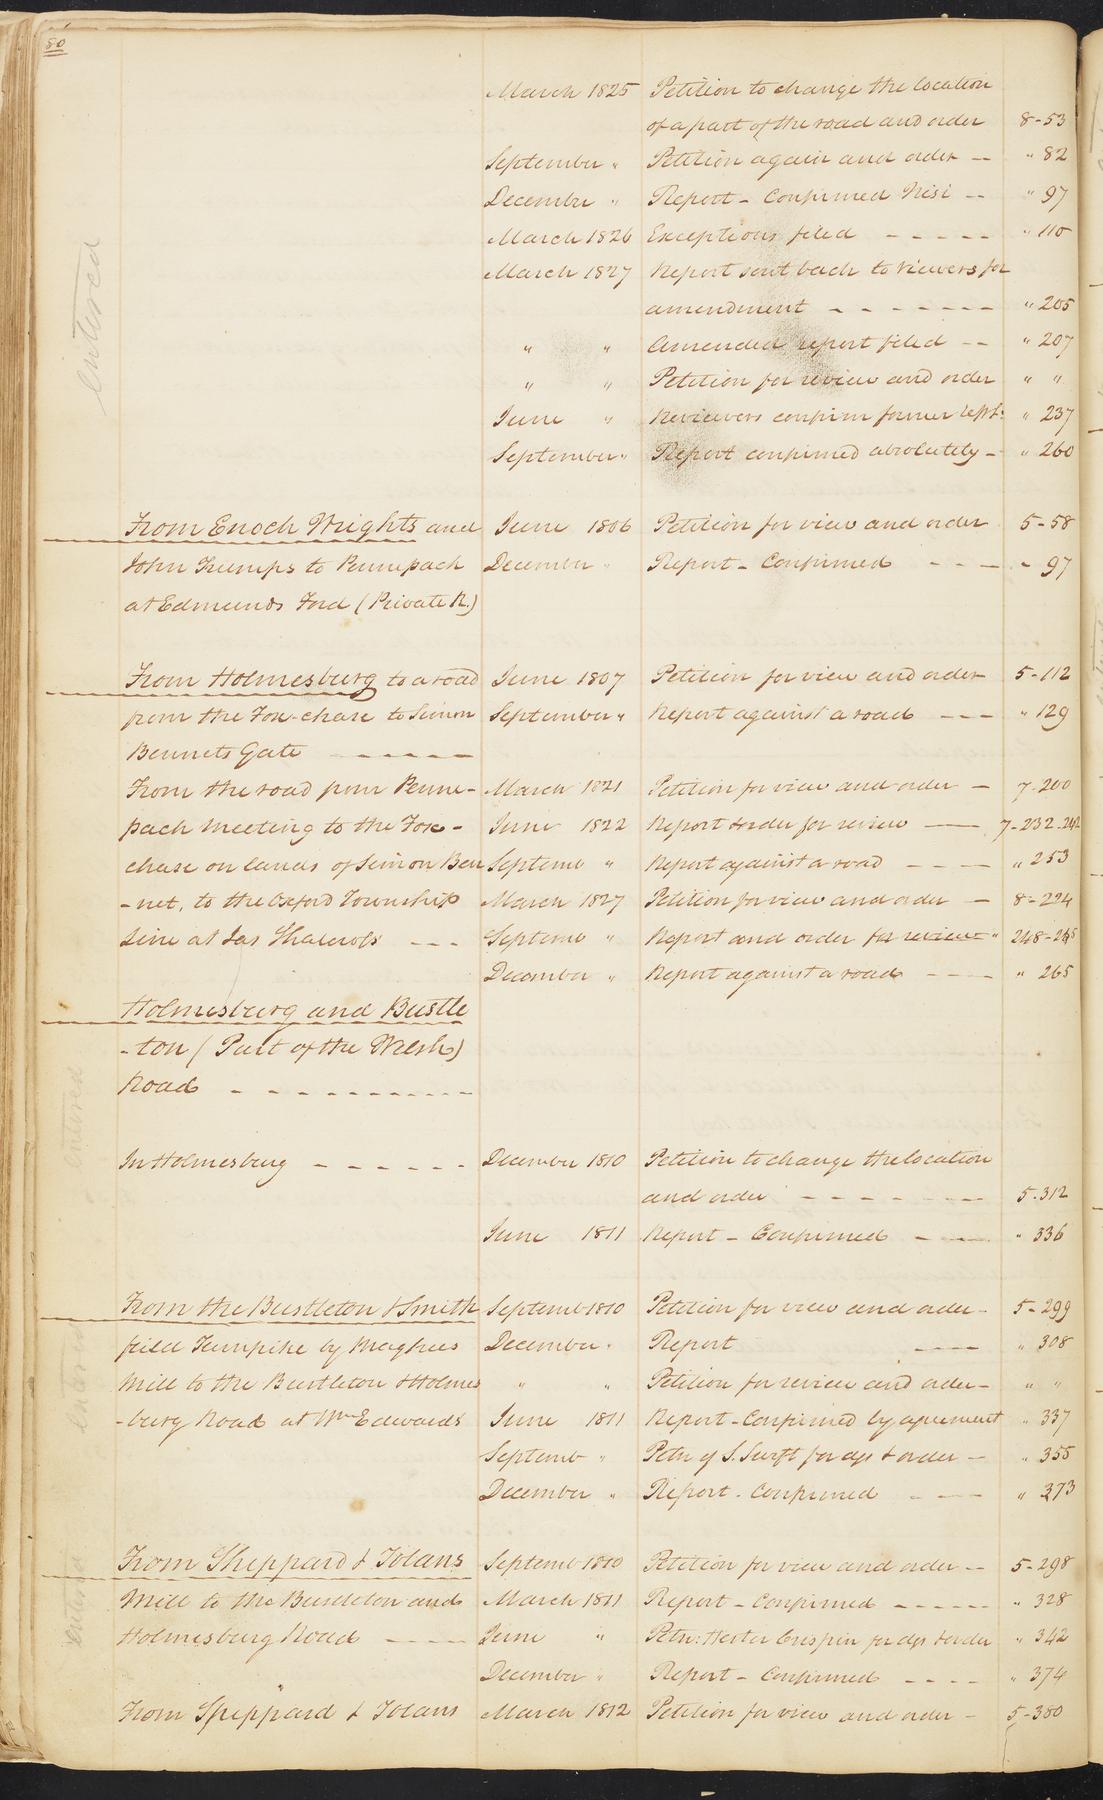 80
March 1825 Petition to change the location
of a part of the road and order 8-53
September " Petition again and order -- " 82
December " Report - Confirmed Nisi -- " 97
March 1826 Exceptions filed ----- " 110
March 1827 Report sent back to Viewers for
amendment ------- " 205
" " Amended report filed -- " 207
" " Petition for review and order " "
June " Reviewers confirm former rept: " 237
September " Report confirmed absolutely - " 260
entered
From Enoch Wrights and June 1806 Petition for view and order 5-58
John Krumps to Pennepack December " Report - Confirmed ---- 97
at Edmunds Ford (Private R.)
From Holmesburg to a road June 1807 Petition for view and order 5-112
from the Fox-chase to Simon September " Report against a road --- " 129
Bennets Gate ------
From the road from Penne- March 1821 Petition for view and order - 7-200
pack meeting to the Fox- June 1822 Report & order for review -- 7-232-242
chase on lands of Simon Ben Septemb " Report against a road ---- " 253
-net, to the Oxford Township March 1827 Petition for view and order - 8-224
Line at Jas Shalcrofs --- Septemb " Report and order for review " 248-245
December " Report against a road ---- " 265
Holmesburg and Bustle
-ton (Part of the Welsh)
Road -----------
entered
In Holmesburg ------ December 1810 Petition to change the location
and order -------- 5-312
June 1811 Report - Confirmed --- " 336
From the Bustleton & Smith Septemb 1810 Petition for view and order - 5-299
field Turnpike by Maghees December " Report ---- " 308
Mill to the Bustleton & Holmes " " Petition for review and order - " "
-burg Road at Wm Edwards June 1811 Report - Confirmed by agreement " 337
Septemb " Petn of S. Swift for dgs & order - " 355
December " Report - Confirmed --- " 373
entered
From Sheppard & Tolans Septemb 1810 Petition for view and order -- 5-298
Mill to the Bustleton and March 1811 Report - Confirmed ------ " 328
Holmesburg Road ---- June " Petn: Hester Crispin for dgs & order " 342
December " Report - Confirmed ---- " 374
entered
From Sheppard & Tolans March 1812 Petition for view and order - 5-380